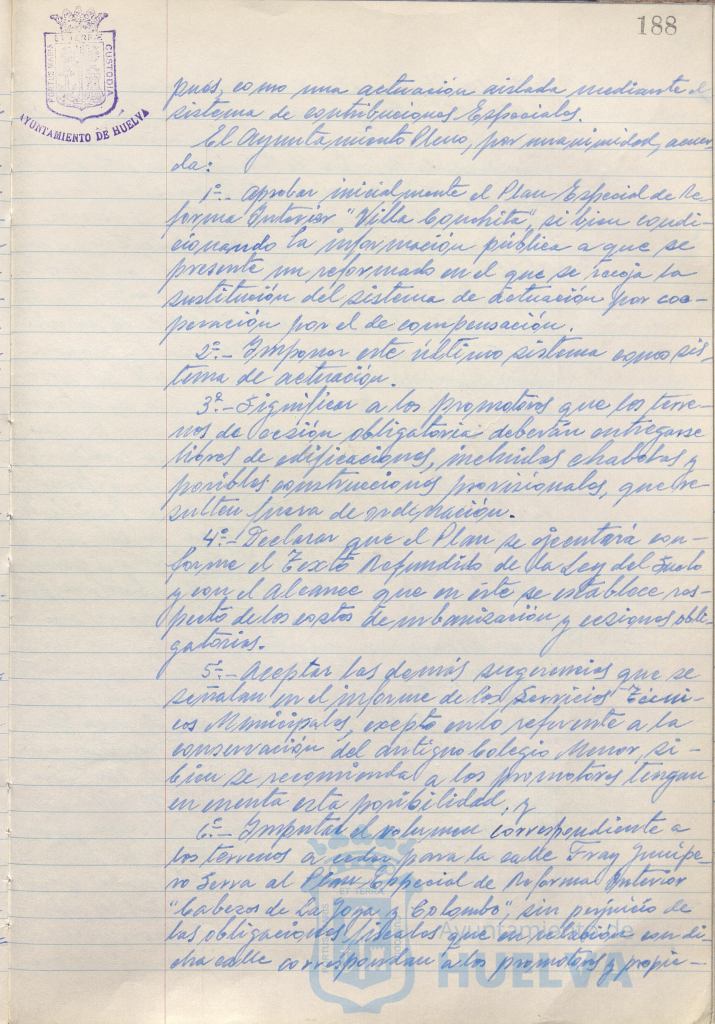 188
PORTUS MARIS
ET TERRAE
CUSTODIA
AYUNTAMIENTO DE HUELVA
pues, como una actuación aislada mediante el
sistema de contribuciones Especiales.
El Ayuntamiento Pleno, por unanimidad, acuer-
da:
1º.- Aprobar inicialmente el Plan Especial de Re-
forma Interior "Villa Conchita", si bien condi-
cionando la información pública a que se
presente un reformado en el que se recoja la
sustitución del sistema de actuación por coo-
peración por el de compensación.
2º.- Imponer este último sistema como sis-
tema de actuación.
3º.- Significar a los promotores que los terre-
nos de cesión obligatoria deberán entregarse
libres de edificaciones, incluidas chabolas y
posibles construcciones provisionales, que re-
sulten fuera de ordenación.
4º.- Declarar que el Plan se ejecutará con-
forme el Texto Refundido de la Ley del Suelo
y con el alcance que en éste se establece res-
pecto de los costos de urbanización y cesiones obli-
gatorias.
5º.- Aceptar las demás sugerencias que se
señalan en el informe de los Servicios Técni-
cos Municipales, excepto en lo referente a la
conservación del antiguo Colegio Menor, si-
bien se recomienda a los promotores tengan
en cuenta esta posibilidad, y
6º.- Imputar el volumen correspondiente a
los terrenos a ceder para la calle Fray Junípe-
ro Serra al Plan Especial de Reforma Interior
"Cabezos de La Joya y Colombo", sin perjuicio de
las obligaciones fiscales que en relación con di-
cha calle correspondan a los promotores y propie-
Ayuntamiento de
HUELVA